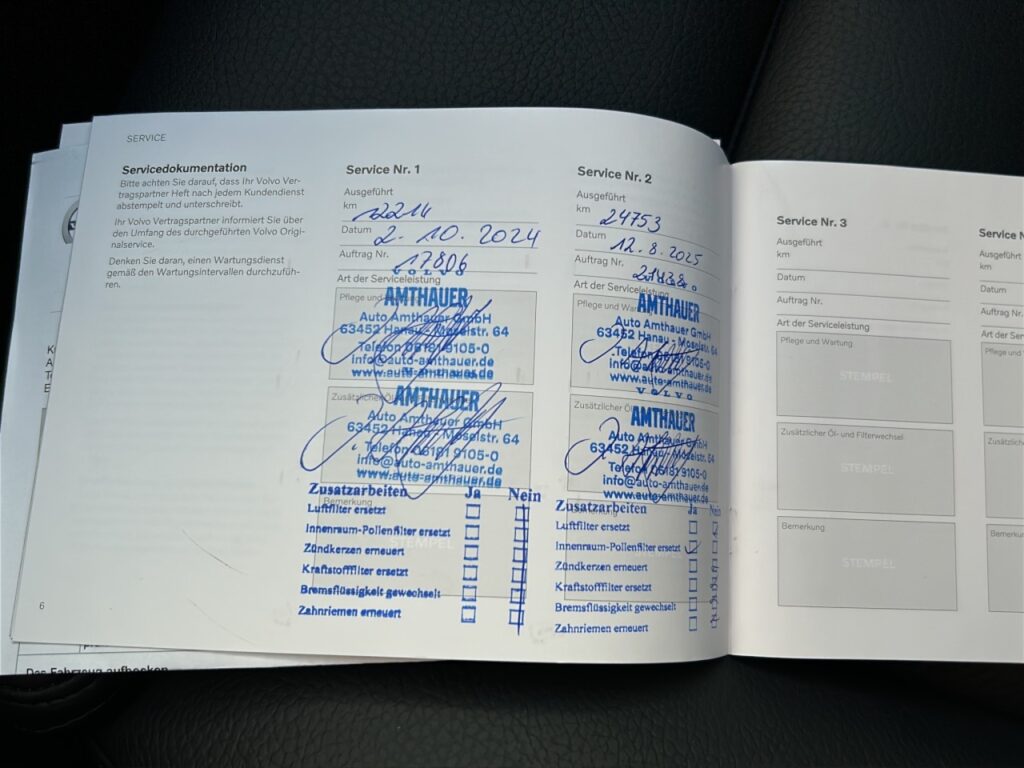 SERVICE
Servicedokumentation
Bitte achten Sie darauf, dass Ihr Volvo Ver-
tragspartner Heft nach jedem Kundendienst
abstempelt und unterschreibt.
Ihr Volvo Vertragspartner informiert Sie über
den Umfang des durchgeführten Volvo Origi-
nalservice.
Denken Sie daran, einen Wartungsdienst
gemäß den Wartungsintervallen durchzufüh-
ren.
6
Das Fahrzeug aufbocken
Service Nr. 1
Ausgeführt
km 12214
Datum 2. 10. 2024
Auftrag Nr. 17806
Art der Serviceleistung
VOLVO
Pflege und
AMTHAUER
Auto Amthauer GmbH
63452 Hanau - Moselstr. 64
Telefon 06181 9105-0
info@auto-amthauer.de
www.auto-amthauer.de
Zusätzlicher Öl-
AMTHAUER
Auto Amthauer GmbH
63452 Hanau - Moselstr. 64
Telefon 06181 9105-0
info@auto-amthauer.de
www.auto-amthauer.de
Bemerkung
STEMPEL
Zusatzarbeiten Ja Nein
Luftfilter ersetzt
Innenraum-Pollenfilter ersetzt
Zündkerzen erneuert
Kraftstofffilter ersetzt
Bremsflüssigkeit gewechselt
Zahnriemen erneuert
Service Nr. 2
Ausgeführt
km 24753
Datum 12. 8. 2025
Auftrag Nr.
Art der Serviceleistung
Pflege und War
AMTHAUER
Auto Amthauer GmbH
63452 Hanau - Moselstr. 64
Telefon 06181 9105-0
info@auto-amthauer.de
www.auto-amthauer.de
VOLVO
Zusätzlicher Öl
AMTHAUER
Auto Amthauer GmbH
63452 Hanau - Moselstr. 64
Telefon 06181 9105-0
info@auto-amthauer.de
www.auto-amthauer.de
Zusatzarbeiten Ja Nein
Luftfilter ersetzt
Innenraum-Pollenfilter ersetzt
Zündkerzen erneuert
Kraftstofffilter ersetzt
Bremsflüssigkeit gewechselt
Zahnriemen erneuert
Service Nr. 3
Ausgeführt
km
Datum
Auftrag Nr.
Art der Serviceleistung
Pflege und Wartung
STEMPEL
Zusätzlicher Öl- und Filterwechsel
STEMPEL
Bemerkung
STEMPEL
Service N
Ausgeführt
km
Datum
Auftrag Nr.
Art der Ser
Pflege und
Zusätzlich
Bemerku